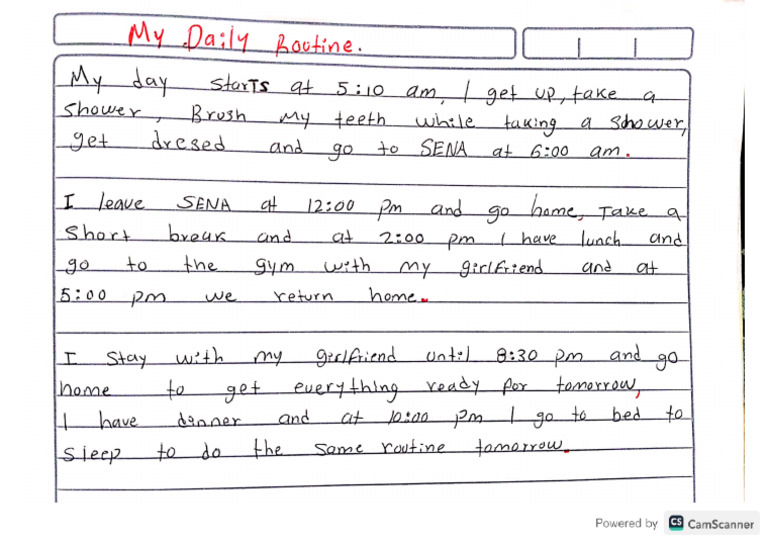 My Daily Routine.
My day starts at 5:10 am, I get up, take a
shower, Brush My teeth while taking a shower,
get dresed and go to SENA at 6:00 am.
I leave SENA at 12:00 pm and go home, Take a
short break and at 2:00 pm I have lunch and
go to the gym with my girlfriend and at
5:00 pm we return home.
I stay with my girlfriend until 8:30 pm and go
home to get everything ready for tomorrow,
I have dinner and at 10:00 pm I go to bed to
sleep to do the same routine tomorrow.
Powered by CS CamScanner